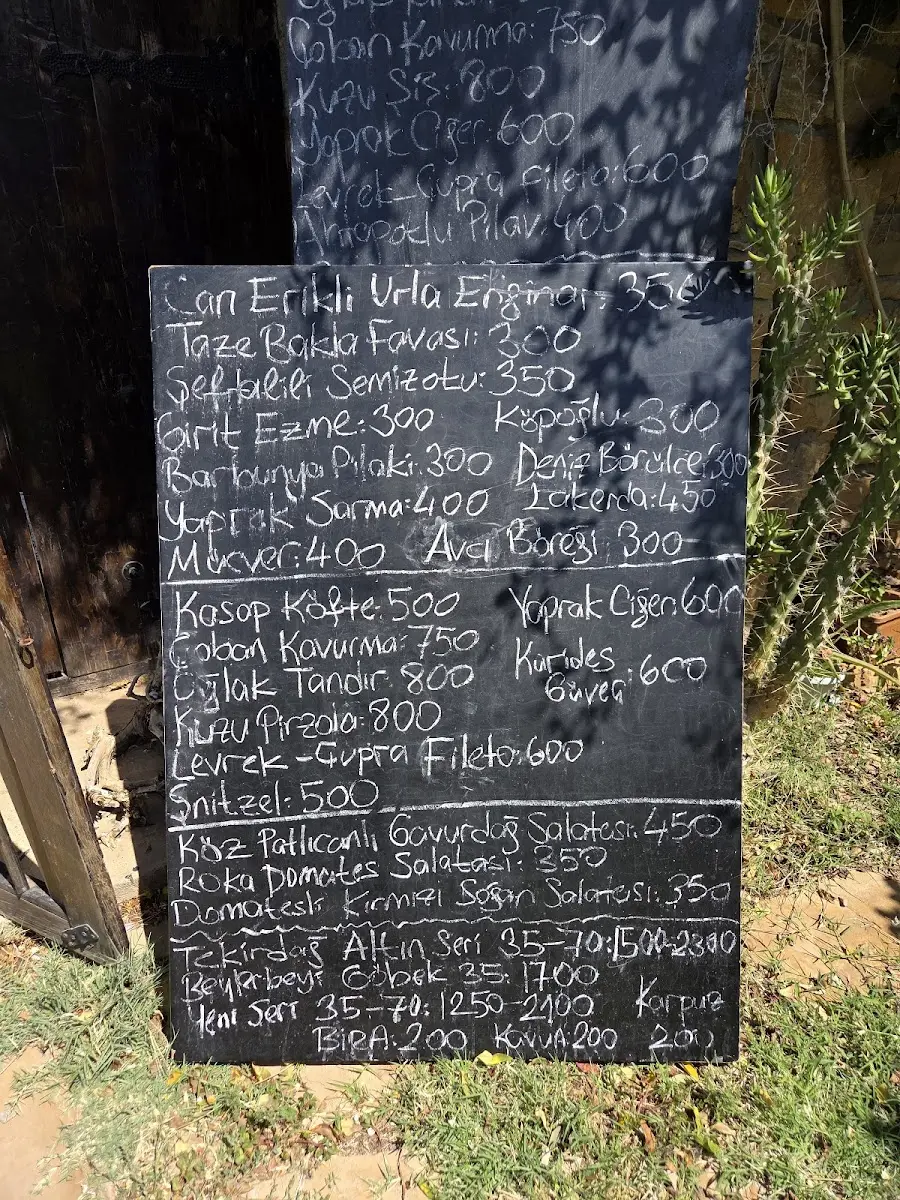 Çoban Kavurma: 750
Kuzu Şiş: 800
Yaprak Ciğer: 600
Levrek-Çupra Fileto: 600
Pilav: 400
Can Erikli Urla Enginar: 350
Taze Bakla Favası: 300
Şeftalili Semizotu: 350
Girit Ezme: 300 Köpoğlu: 300
Barbunya Pilaki: 300 Deniz Börülce: 300
Yaprak Sarma: 400 Lakerda: 450
Mücver: 400 Avcı Böreği 300
Kasap Köfte: 500 Yaprak Ciğer: 600
Çoban Kavurma: 750
Oğlak Tandır: 800 Karides Güveç: 600
Kuzu Pirzola: 800
Levrek-Çupra Fileto: 600
Şnitzel: 500
Köz Patlıcanlı Gavurdağ Salatası: 450
Roka Domates Salatası: 350
Domatesli Kırmızı Soğan Salatası: 350
Tekirdağ Altın Seri 35-70: 1500-2300
Beylerbeyi Göbek 35: 1700
Yeni Seri 35-70: 1250-2100 Karpuz
BİRA: 200 KavuN: 200 200